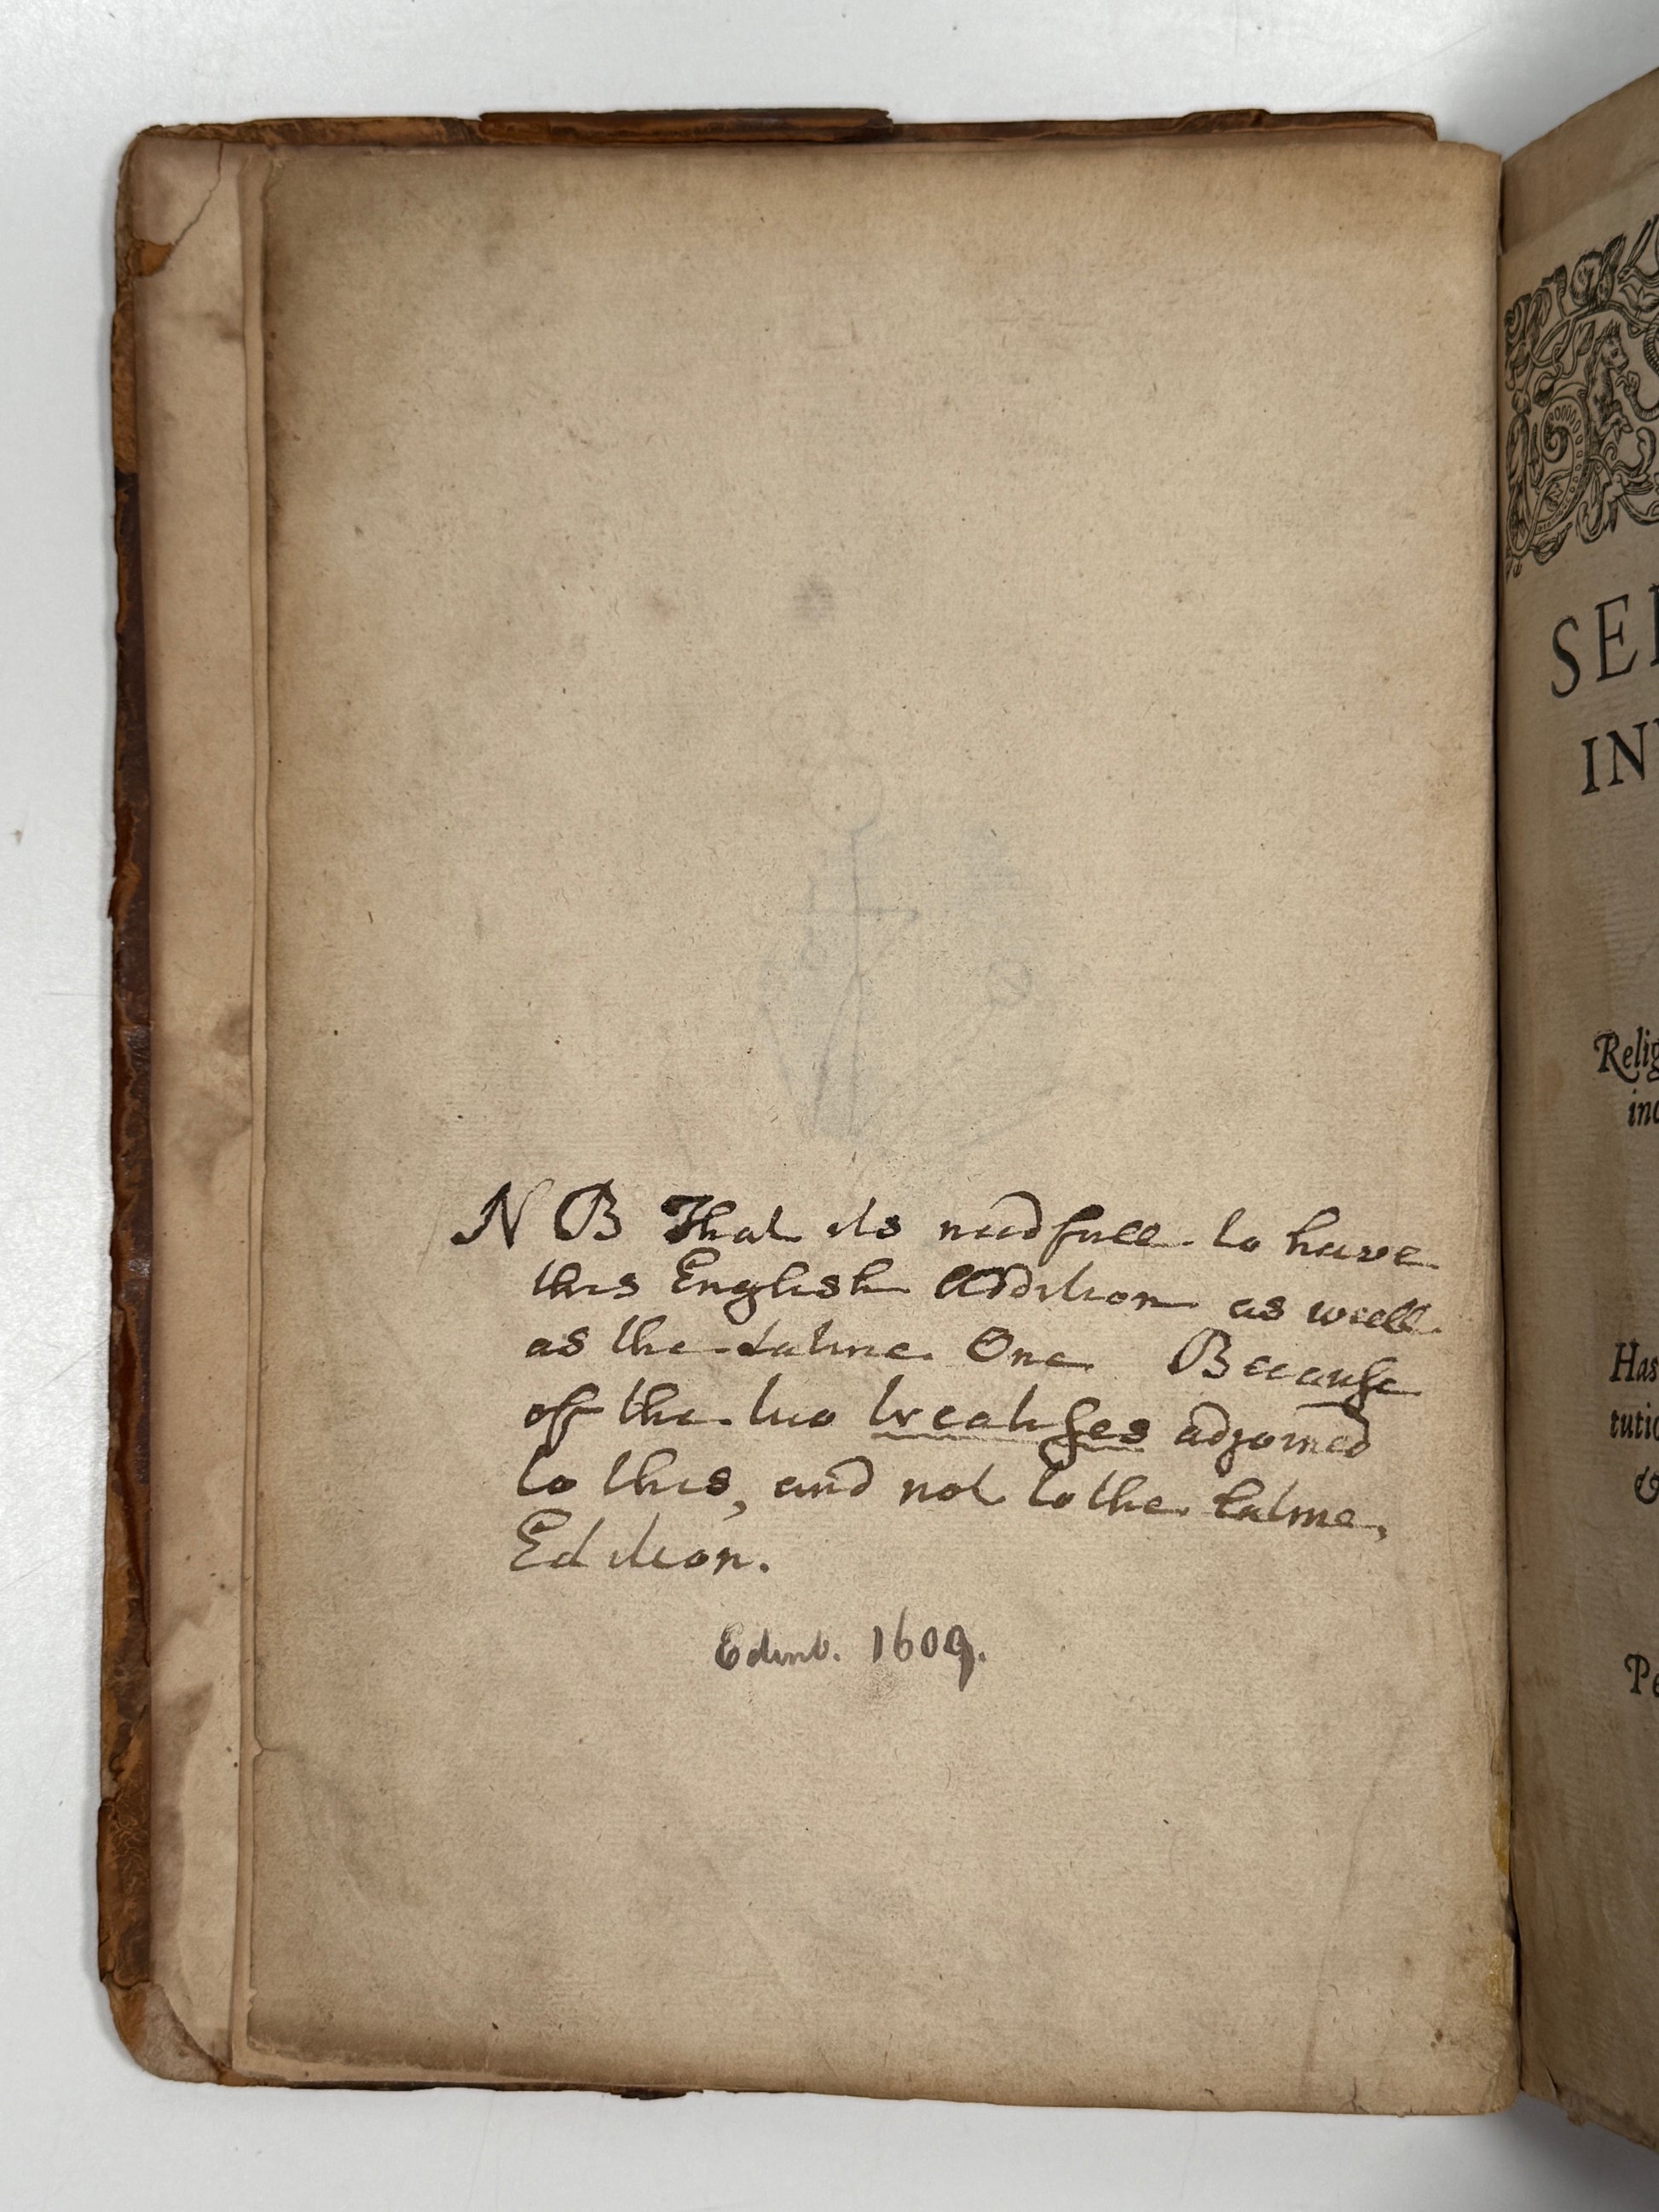 N B That its needfull to have
this English Addition as weell
as the Latine One Because
off the two treatises adjoined
to this, and not to the Latine,
Edition.
Edinb. 1609.
SE
IN
Relig
inc
Has
tutio
&
Pe